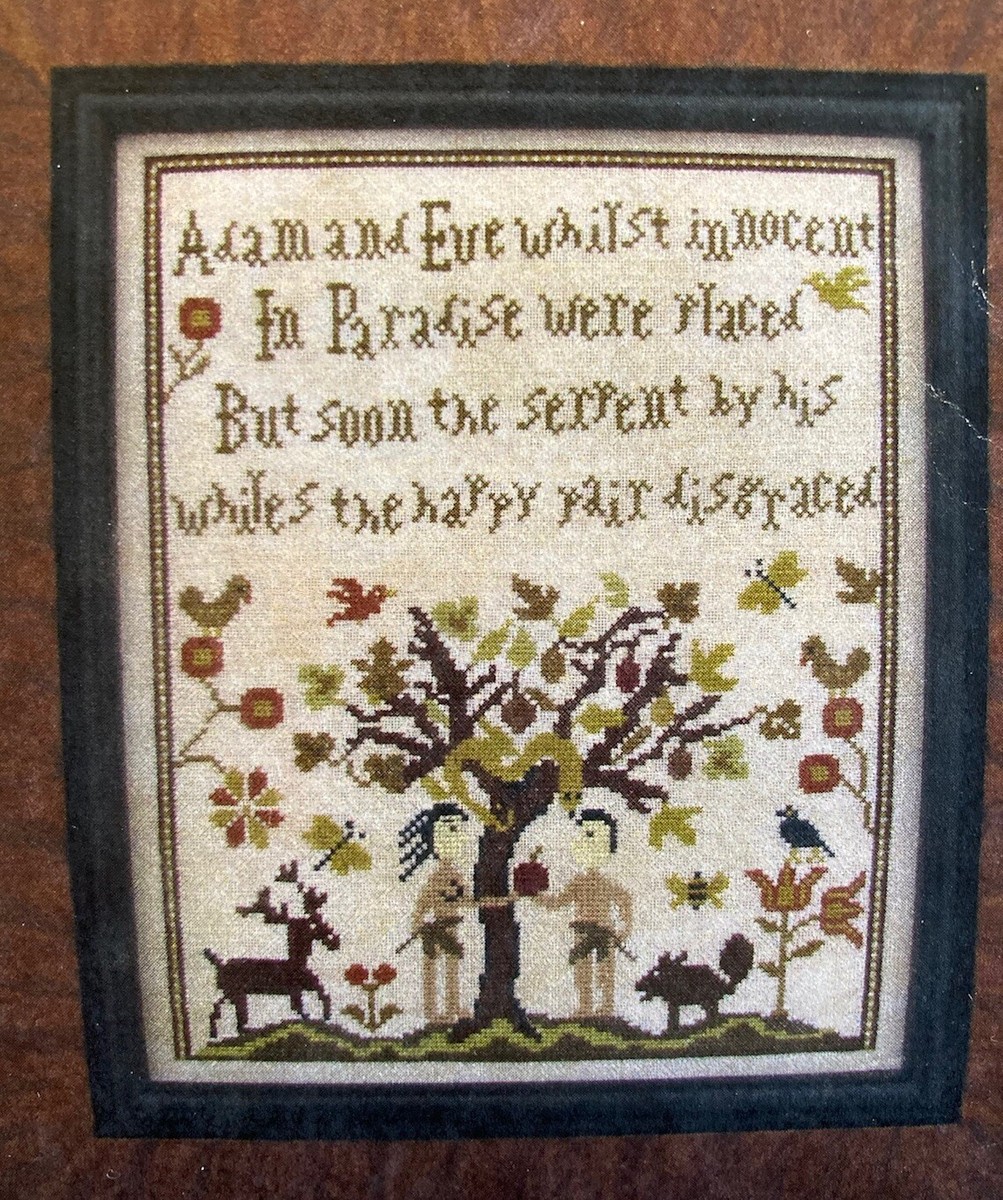 Adam and Eve whilst innocent
In Paradise were placed
But soon the serpent by his
whiles the happy pair disgraced